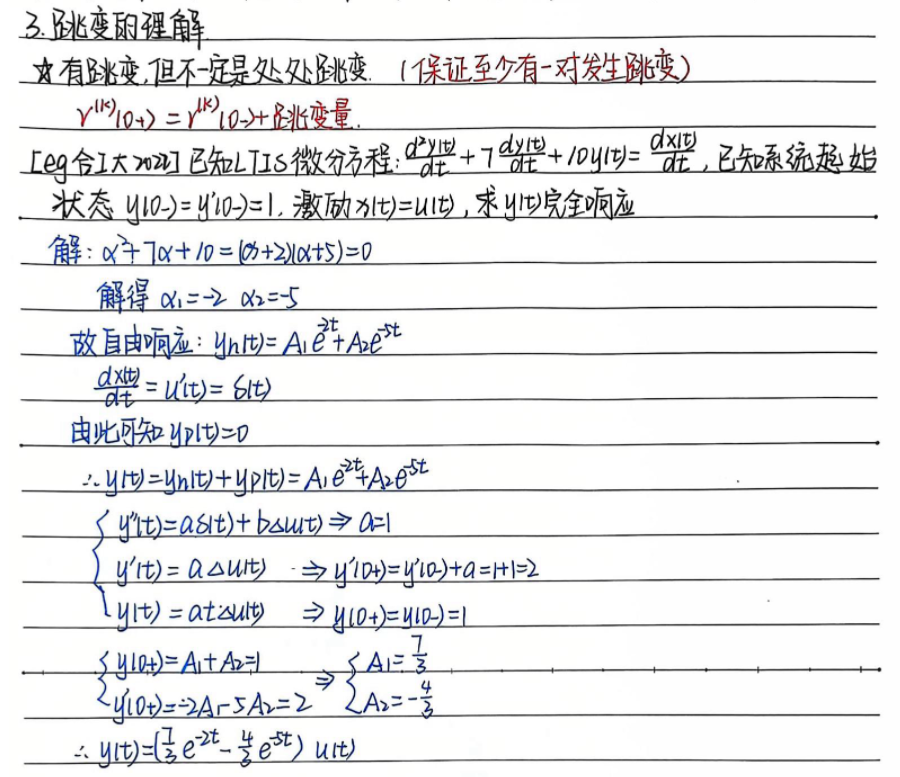 3.跳变的理解
☆有跳变,但不一定是处处跳变.(保证至少有一对发生跳变)
r⁽ᵏ⁾(0+) = r⁽ᵏ⁾(0-)+跳变量.
[eg合工大2022]已知LTIS微分方程: d²y(t)/dt + 7 dy(t)/dt + 10y(t) = dx(t)/dt, 已知系统起始
状态 y(0-)=y'(0-)=1, 激励x(t)=u(t), 求y(t)完全响应
解: α²+7α+10=(α+2)(α+5)=0
解得 α₁=-2 α₂=-5
故自由响应: yh(t)= A₁e^-2t+A₂e^-5t
dx(t)/dt = u'(t)= δ(t)
由此可知 yp(t)=0
∴ y(t)=yh(t)+yp(t)=A₁e^-2t+A₂e^-5t
{ y''(t)=aδ(t)+bΔu(t) ⇒ a=1
y'(t)=aΔu(t) ⇒ y'(0+)=y'(0-)+a=1+1=2
y(t)=atΔu(t) ⇒ y(0+)=y(0-)=1
{ y(0+)=A₁+A₂=1 ⇒ { A₁=7/3
y'(0+)=-2A₁-5A₂=2 A₂=-4/3
∴ y(t)=(7/3 e^-2t - 4/3 e^-5t) u(t)